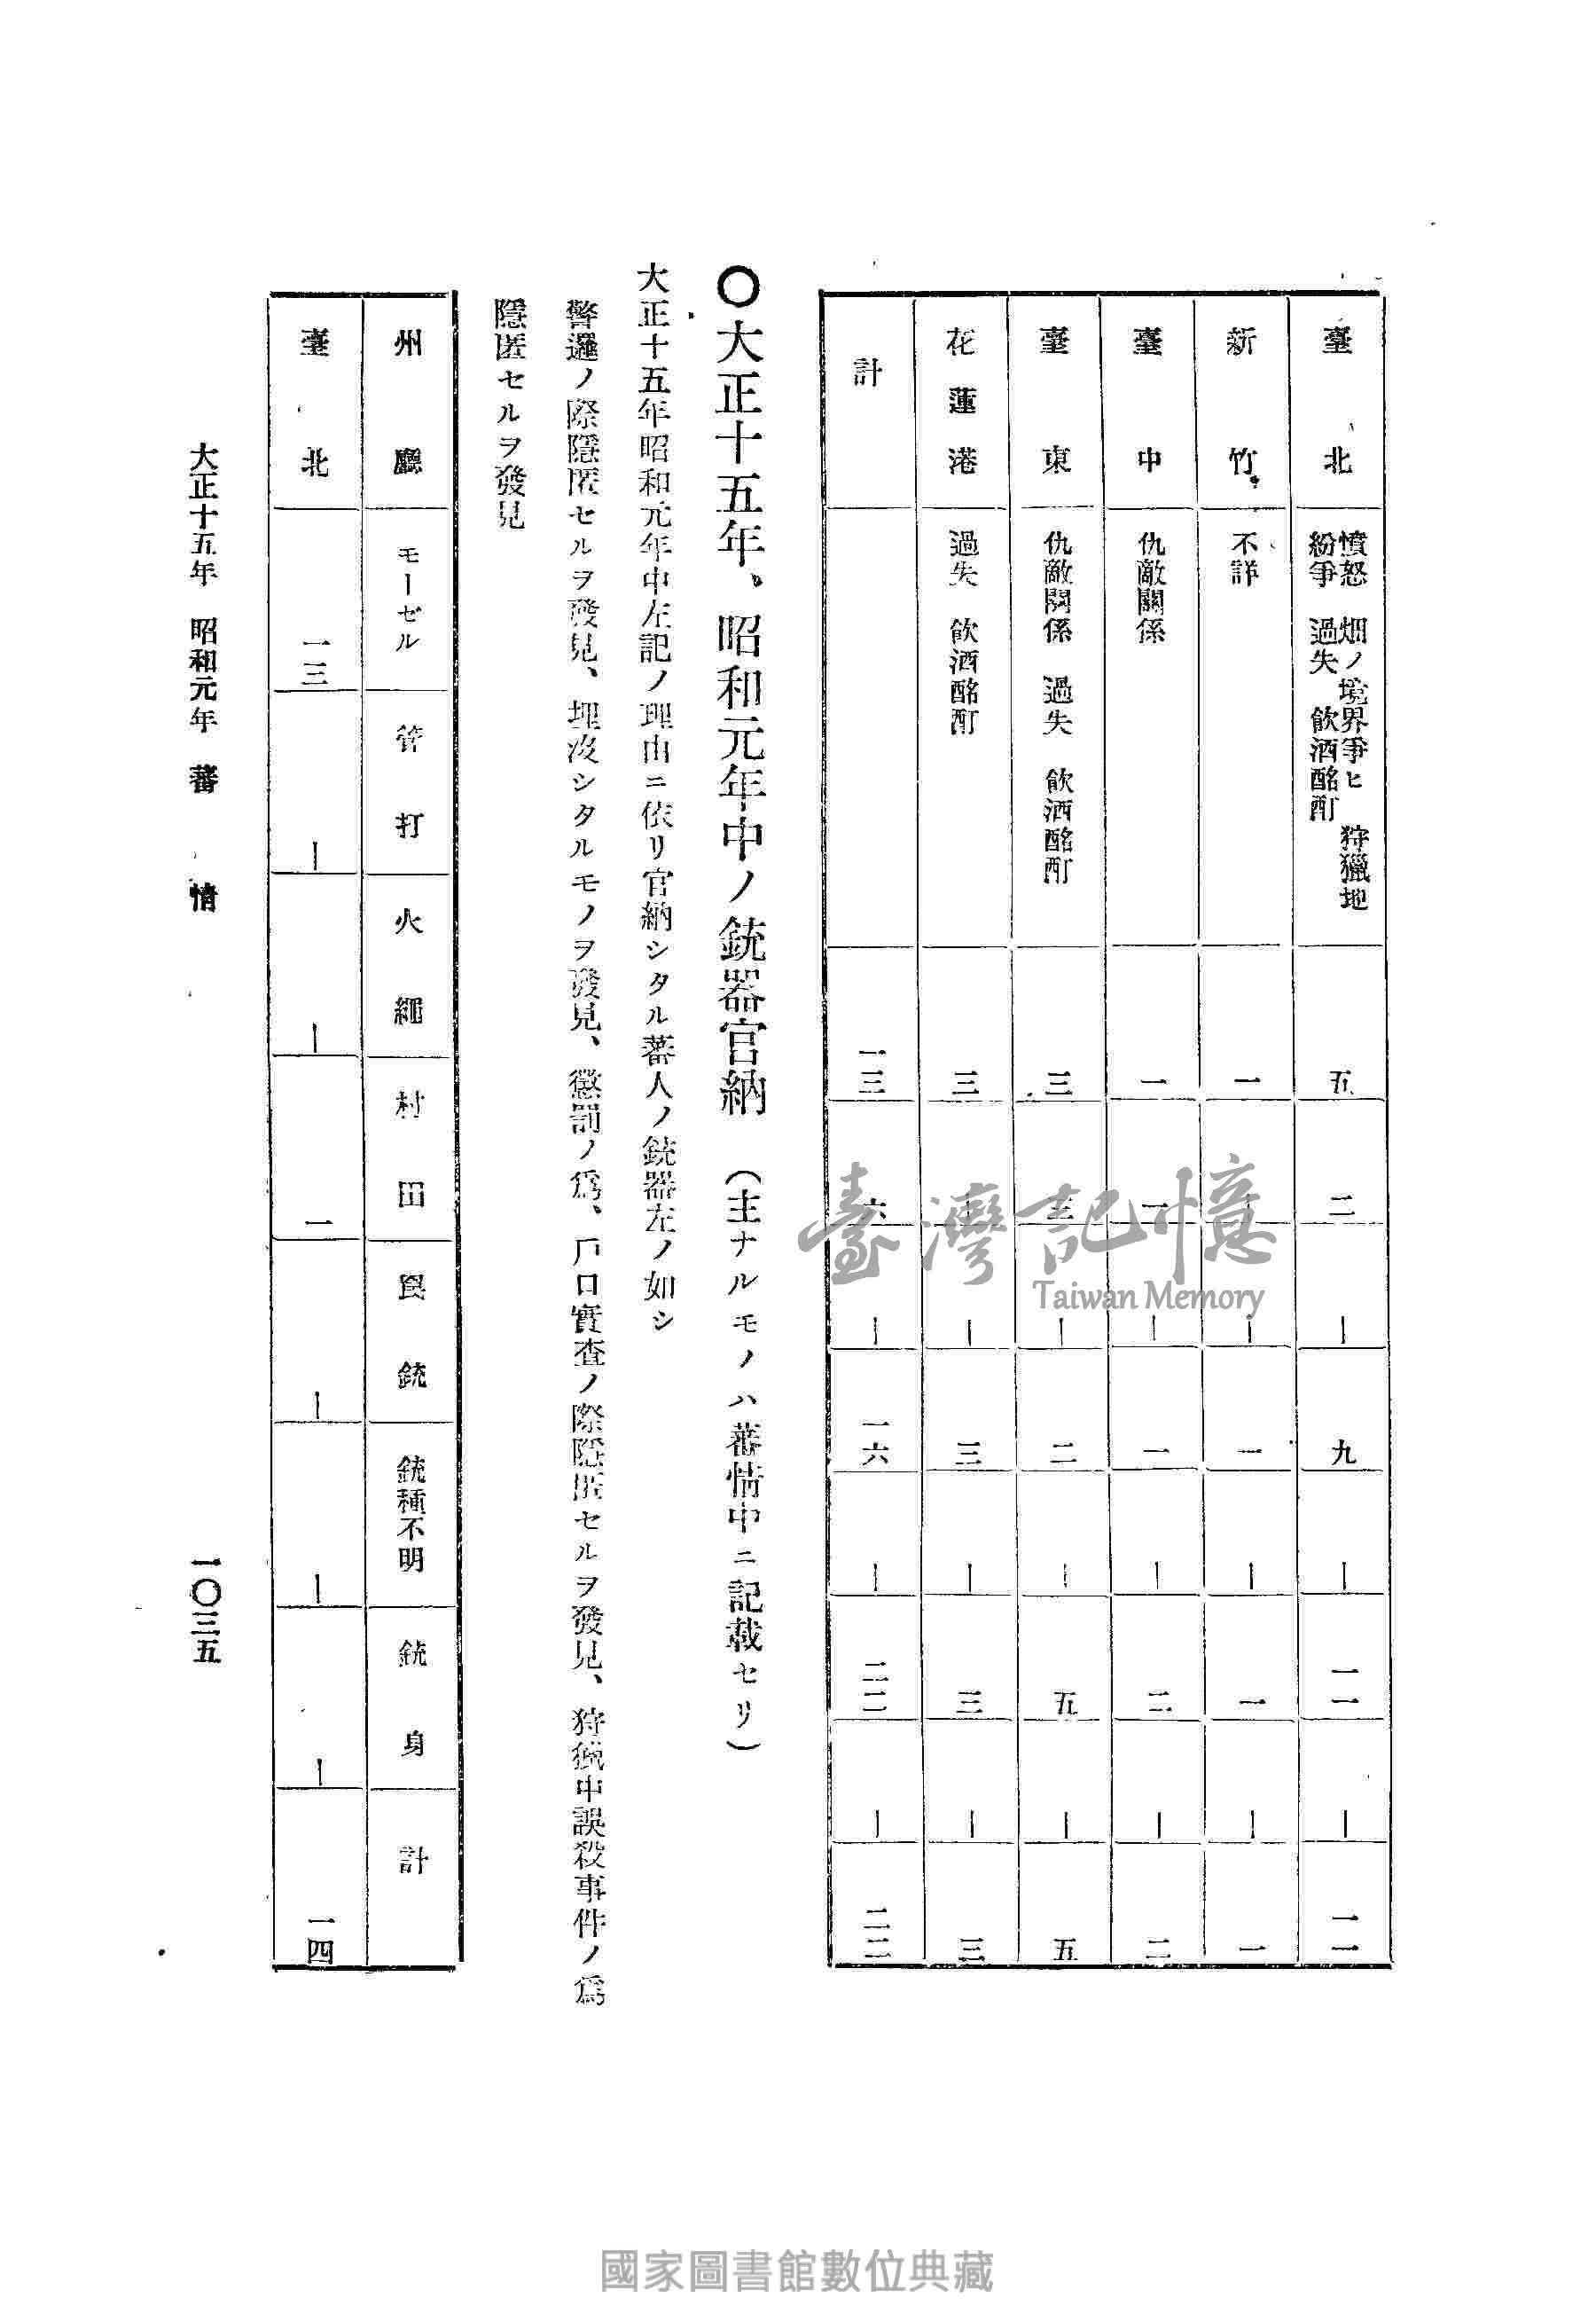 臺北 憤怒 畑ノ境界爭ヒ 狩獵地
紛爭 過失 飲酒酩酊 五 二 ー 九 ー 一一 ー 一一
新竹 不詳 一 ー ー 一 ー 一 ー 一
臺中 仇敵關係 一 一 ー 一 ー 二 ー 二
臺東 仇敵關係 過失 飲酒酩酊 三 三 ー 二 ー 五 ー 五
花蓮港 過失 飲酒酩酊 三 ー ー 三 ー 三 ー 三
計 一三 六 ー 一六 ー 二二 ー 二二
〇大正十五年、昭和元年中ノ銃器官納 (主ナルモノハ蕃情中ニ記載セリ)
大正十五年昭和元年中左記ノ理由ニ依リ官納シタル蕃人ノ銃器左ノ如シ
警邏ノ際隱匿セルヲ發見、埋沒シタルモノヲ發見、懲罰ノ爲、戶口實査ノ際隱匿セルヲ發見、狩獵中誤殺事件ノ爲
隱匿セルヲ發見
州廳 モーゼル 管打 火繩 村田 罠銃 銃種不明 銃身 計
臺北 一三 ー ー 一 ー ー ー 一四
大正十五年 昭和元年 蕃情 一〇三五
臺灣記憶
Taiwan Memory
國家圖書館數位典藏